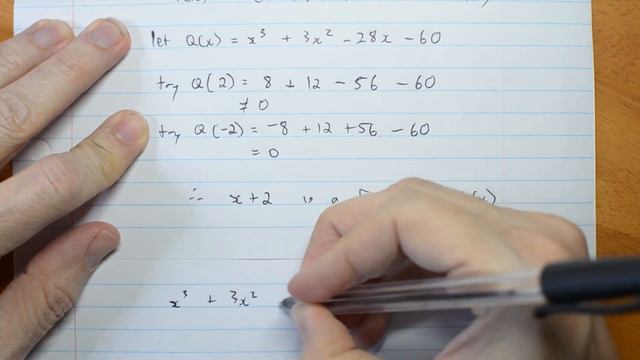 let Q(x) = x³ + 3x² - 28x - 60
try Q(2) = 8 + 12 - 56 - 60
≠ 0
try Q(-2) = -8 + 12 + 56 - 60
= 0
∴ x+2 is a
x³ + 3x²